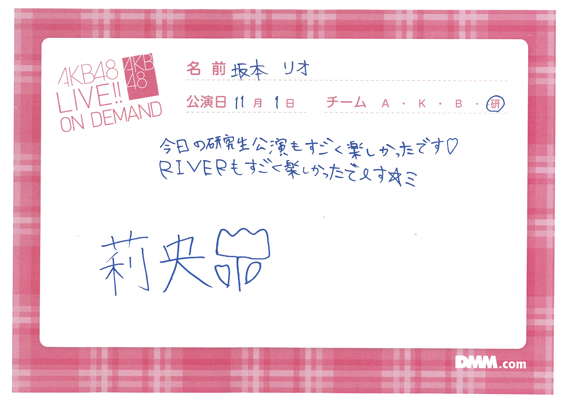 AKB48
LIVE!!
ON DEMAND
AKB
48
名前 坂本 リオ
公演日 11月1日 チーム A・K・B・研
今日の研究生公演もすごく楽しかったです♡
RIVERもすごく楽しかったでえす☆ミ
莉央
DMM.com